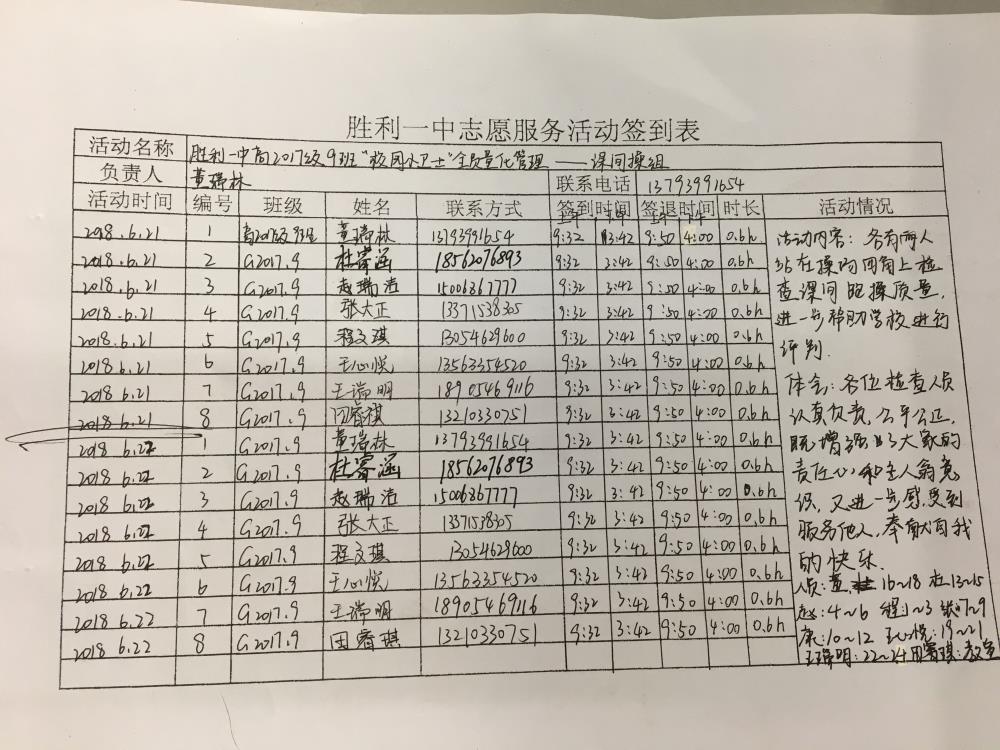 胜利一中志愿服务活动签到表
活动名称 胜利一中高2017级9班"校园小卫士"全员量化管理——课间操组
负责人 董瑞林 联系电话 13793991654
活动时间 编号 班级 姓名 联系方式 签到时间 签退时间 时长 活动情况
上午 下午 上午 下午
2018.6.21 1 高2017级9班 董瑞林 13793991654 9:32 3:42 9:50 4:00 0.6h
2018.6.21 2 G2017.9 杜睿涵 18562076893 9:32 3:42 9:50 4:00 0.6h
2018.6.21 3 G2017.9 赵瑞洁 15006367777 9:32 3:42 9:50 4:00 0.6h
2018.6.21 4 G2017.9 张大正 13371538305 9:32 3:42 9:50 4:00 0.6h
2018.6.21 5 G2017.9 程文琪 13054629600 9:32 3:42 9:50 4:00 0.6h
2018.6.21 6 G2017.9 王心悦 13563354520 9:32 3:42 9:50 4:00 0.6h
2018.6.21 7 G2017.9 王瑞明 18905469116 9:32 3:42 9:50 4:00 0.6h
2018.6.21 8 G2017.9 田睿祺 13210330751 9:32 3:42 9:50 4:00 0.6h
2018 6.22 1 G2017.9 董瑞林 13793991654 9:32 3:42 9:50 4:00 0.6h
2018 6.22 2 G2017.9 杜睿涵 18562076893 9:32 3:42 9:50 4:00 0.6h
2018 6.22 3 G2017.9 赵瑞洁 15006367777 9:32 3:42 9:50 4:00 0.6h
2018 6.22 4 G2017.9 张大正 13371538305 9:32 3:42 9:50 4:00 0.6h
2018 6.22 5 G2017.9 程文琪 13054629600 9:32 3:42 9:50 4:00 0.6h
2018 6.22 6 G2017.9 王心悦 13563354520 9:32 3:42 9:50 4:00 0.6h
2018 6.22 7 G2017.9 王瑞明 18905469116 9:32 3:42 9:50 4:00 0.6h
2018 6.22 8 G2017.9 田睿琪 13210330751 9:32 3:42 9:50 4:00 0.6h
活动内容：各有两人
站在操场四角上检
查课间跑操质量，
进一步帮助学校进行
评判.
体会：各位检查人员
认真负责，公平公正，
既增强了大家的
责任心和主人翁意
识，又进一步感受到
服务他人，奉献自我
的快乐.
人员：董 16~18 杜13~15
赵：4~6 程：1~3 张：7~9
康：10~12 王心悦：19~21
王瑞明：22~24 田睿琪：教室